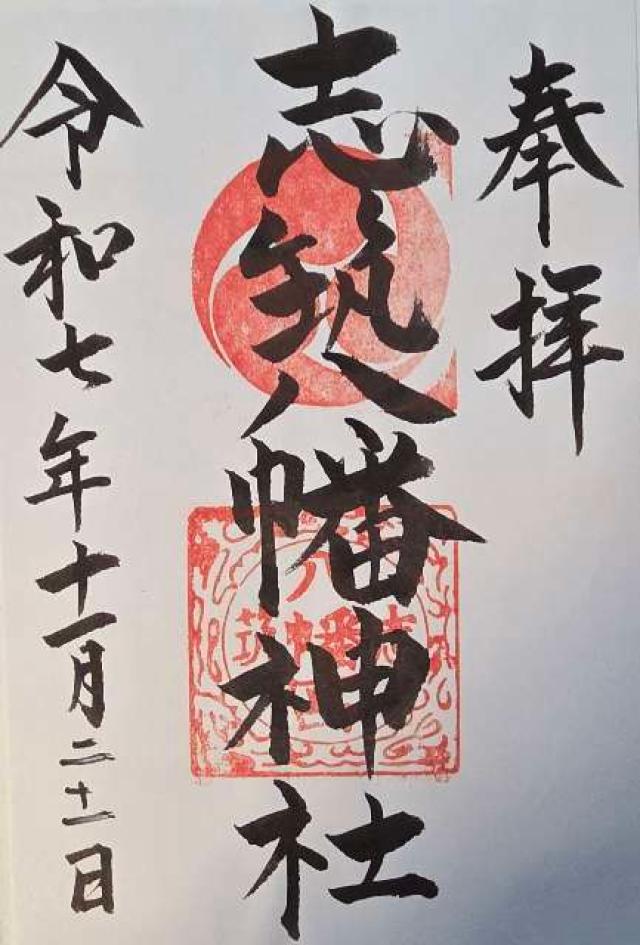 奉拝
志筑八幡神社
令和七年十一月二十一日